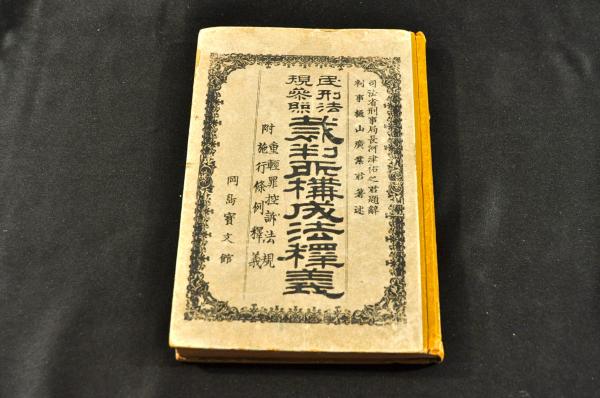 司法省刑事局長河津祐之君題辭
判事樋山廣業君著述
民刑法
規參照
裁判所構成法釋義
附
重輕罪控訴法規
施行條例釋義
岡島寶文館